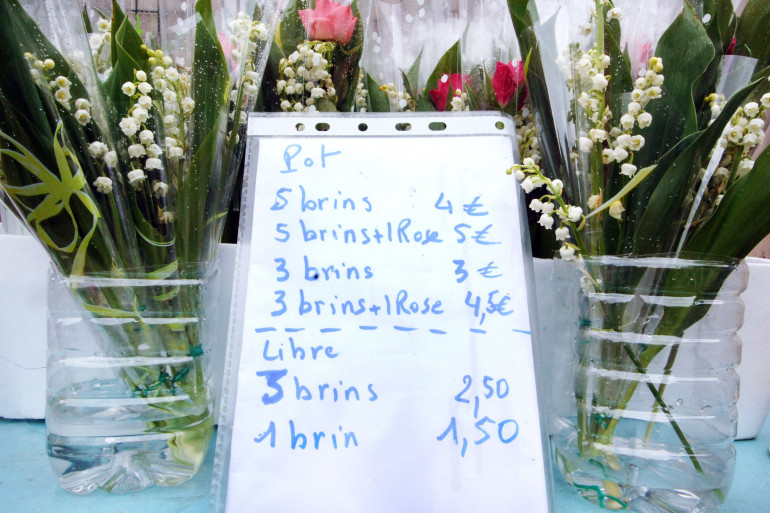 Pot
5 brins 4 €
5 brins+1Rose 5 €
3 brins 3 €
3 brins+1Rose 4,5€
Libre
3 brins 2,50
1 brin 1,50